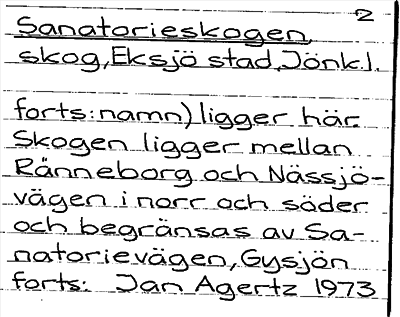 2
Sanatorieskogen,
skog, Eksjö stad, Jönk.l.
forts: namn) ligger här.
Skogen ligger mellan
Ränneborg och Nässjö-
vägen i norr och söder
och begränsas av Sa-
natorievägen, Gysjön
forts: Jan Agertz 1973